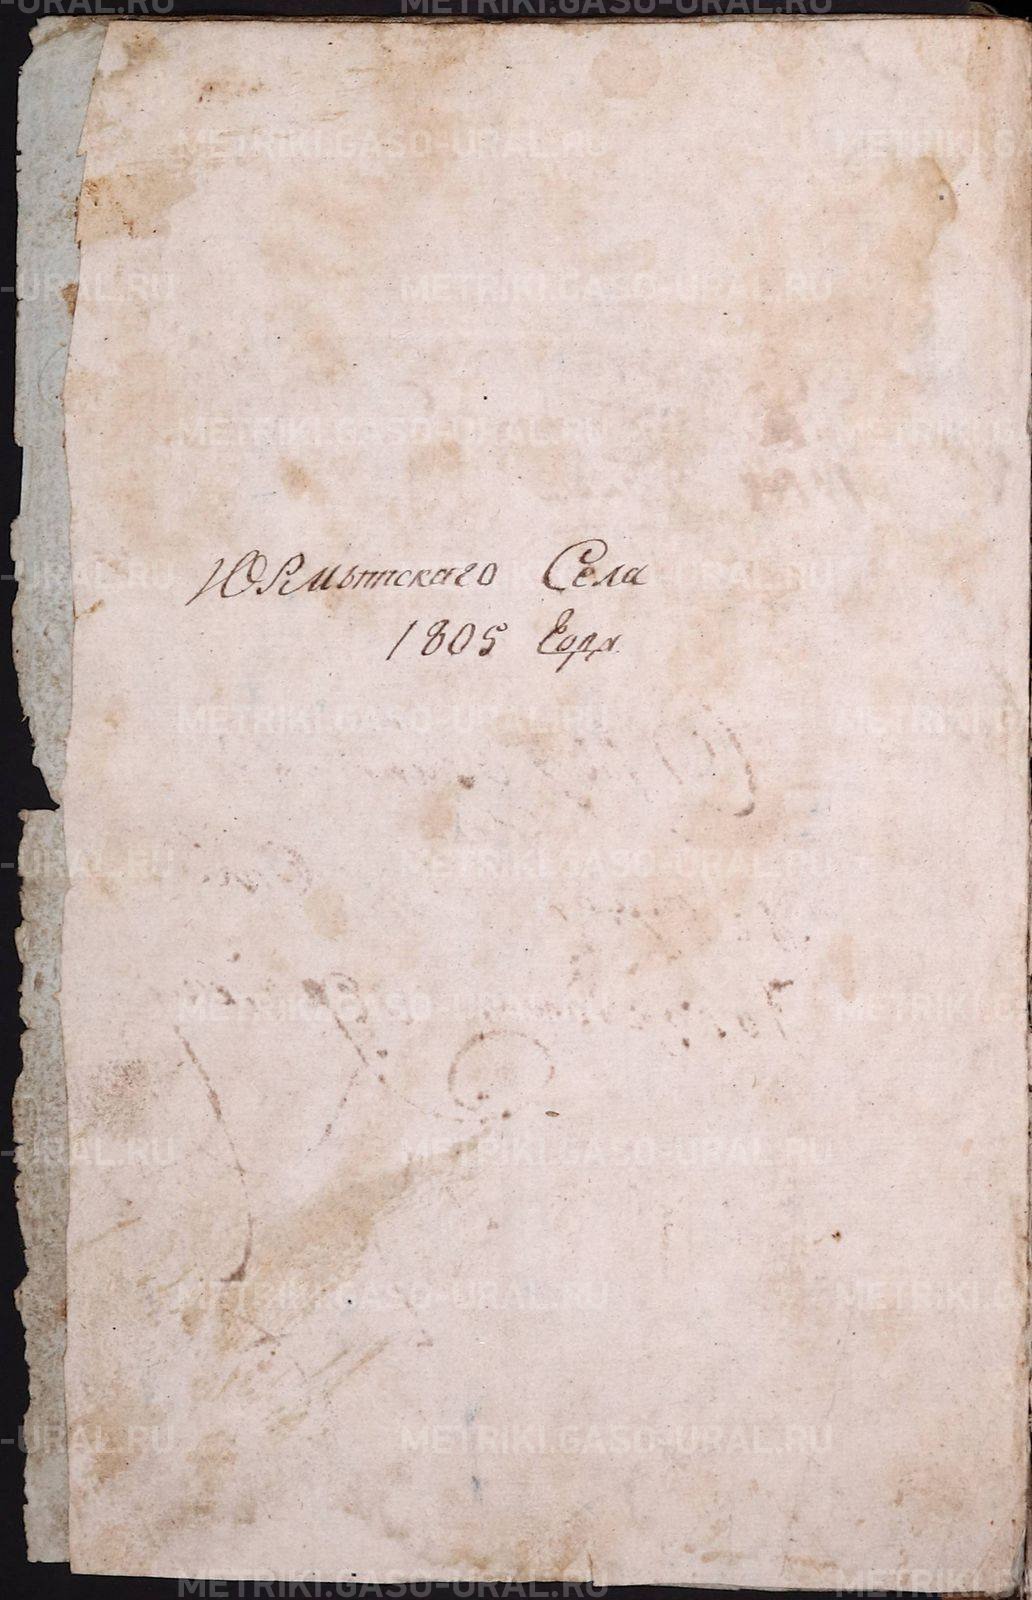 Юрмытскаго Села
1805 Года
METRIKI.GASO-URAL.RU